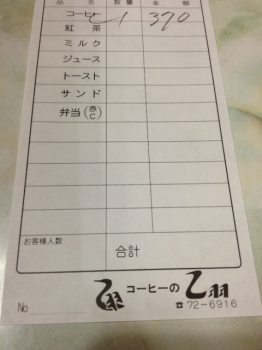 品 名 数量 金 額
コーヒー 1 370
紅 茶
ミ ル ク
ジュース
トースト
サ ン ド
弁当(赤C)
お客様人数
合計
コーヒーの
☎72-6916
No